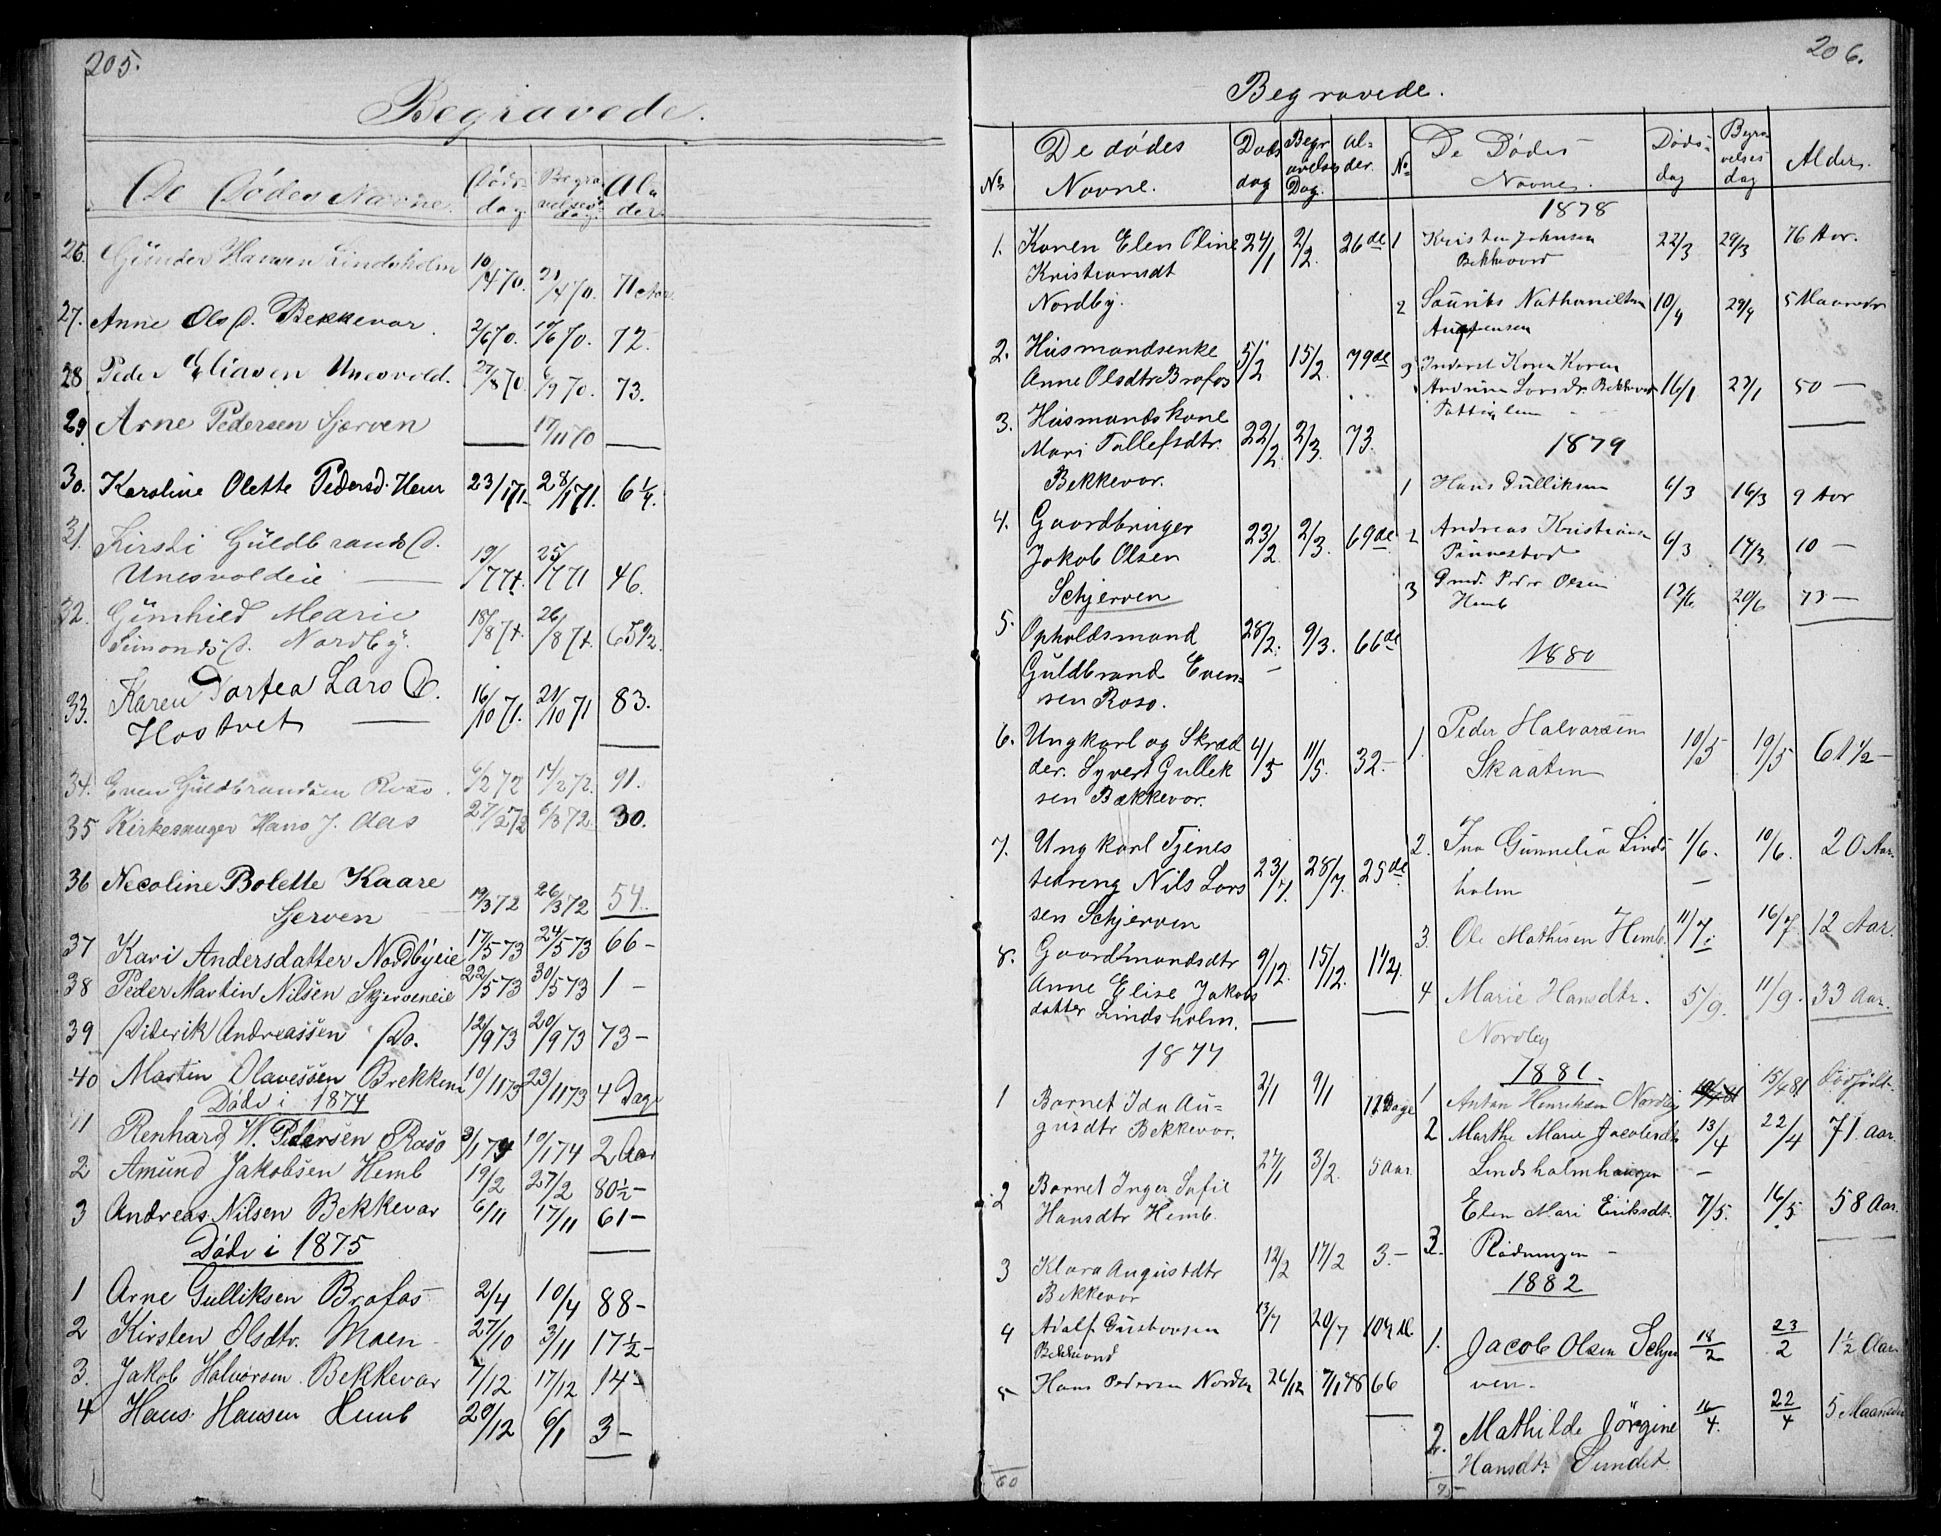 205.
Begravede.
De Dødes Navne. Døds- dag. Begra- velses- dag. Al- der.
26. Günder Hansen Lindsholm 10/4 70. 21/4 70. 71 Aar.
27. Anne Ols D. Bekkevar. 2/6 70. 10/6 70. 72.
28 Peder Eliasen Unesvold. 27/8 70. 6/9 70. 73.
29 Arne Pedersen Sjerven — 17/11 70 —
30. Karoline Olette Pedersd. Hem 23/1 71. 28/1 71. 6 1/4.
31. Kirsti Güldbrands D.
Unesvoldeie — 19/7 71. 25/7 71 46.
32. Günhild Marie
Simonds D. Nordby. 18/8 71. 26/8 71. 65 1/2.
33. Karen Dortea Lars D.
Hostvet — 16/10 71. 21/10 71 83.
34. Even Güldbrandsen Roso. 6/2 72 14/2 72. 91.
35 Kirkesanger Hans J. Aas 27/2 72 6/3 72. 30.
36 Necoline Bolette Kaare
Sjerven 19/3 72 26/3 72 54.
37 Kari Andersdatter Nordbyeie 17/5 73 24/5 73 66 -
38 Peder Martin Nilsen Skjerveneie 22/5 73 30/5 73 1 -
39 Diderik Andreassen Do. 12/9 73 20/9 73 73 -
40 Martin Olavessen Brekken 10/11 73 23/11 73 4 Dage
Døde i 1874
1 Renhard W. Pedersen Roso 3/1 74 10/1 74 2 Aar
2 Amund Jakobsen Hemb 19/2 27/2 80 1/2 -
3 Andreas Nilsen Bekkevar 6/11 17/11 61 -
Døde i 1875
1 Arne Gulliksen Brofos 2/4 10/4 88 -
2 Kirsten Olsdtr. Moen 27/10 3/11 17 1/2 -
3. Jakob Halvorsen Bekkevar 7/12 17/12 14 -
4 Hans Hansen Hemb 29/12 6/1 3 -
206.
Begravede.
No De dødes Navne. Døds dag Begr avelses Dag. Al- der.
1. Karen Elen Oline 24/1 2/2. 26 de
Kristiansdt
Nordby.
2. Husmandsenke 5/2 15/2. 79 de
Anne Olsdtr Brofos
3. Husmandskone
Mari Tollefsdtr. 22/2 2/3. 73.
Bekkevar.
4. Gaardbruger
Jakob Olsen 23/2. 2/3. 69 de.
Schjerven
5. Opholdsmand 28/2. 9/3. 66 de
Guldbrand Even-
sen Roso.
6. Ungkarl og Skræd 4/5 11/5. 32. -
der. Syvert Gullek
sen Bækkevar.
7. Ungkarl Tjenes
tedreng Nils Lars 23/7. 28/7. 25 de
sen Schjerven
8. Gaardmandsdtr 9/12. 15/12. 1 1/4.
Anne Elise Jakobs
datter Lindsholm.
1877
1 Barnet Ida Au- 2/1 9/1 12 Dage
gusdtr Bekkevar.
2 Barnet Inger Sofie 27/1 3/2. 5 Aar.
Hansdtr Hemb.
3 Klara Augustdtr 12/2 17/2 3. -
Bekkevar
4 Adolf Gustavsen 13/7 20/7
5 Hans Pedersen Nordby 26/12 7/1 78 66
60
No De Dødes Navne. Døds- dag Begra velses dag Alder.
1878
1 Kristen Johnsen 22/3 29/3 76 Aar.
Bekkevard
2 Nathanielsen 10/4 29/4 5 Maaneder
3 Inderst Karen
Andrine Larsdr. Bekkevar 16/1 27/1 50 —
Fattiglem
1879
1 Hans Gulliksen 6/3 16/3 9 Aar
2 Andreas Kristiansen 6/3 14/3 10 —
3 Gmd. Peder Olsen
Hemb 13/6 20/6 73 —
1880
1. Peder Halvorsen
Skaaten 10/5 19/5 61 1/2 -
2. Ina Gunnelia Linds 1/6. 10/6. 20 Aar.
holm
3. Ole Mathisen Hemb. 11/7. 16/7 12 Aar.
4 Marie Hansdtr. 5/9. 11/9. 33 Aar.
Nordby
1881.
1 Anton Henriksen Nordby 15/4 81 Dødfødt
2 Marthe Marie Jacobsdtr 13/4 22/4 71. Aar
Lindsholmhaugen
3. Elen Mari Eriksdtr. 7/5. 16/5 58 Aar.
Rødningen -
1882
1. Jacob Olsen Schjer 18/2 23/2 1 1/2 Aar
ven.
2. Mathilde Jörgine 16/4. 22/4 5 Maaneder
Hansdtr. Sundet.
75